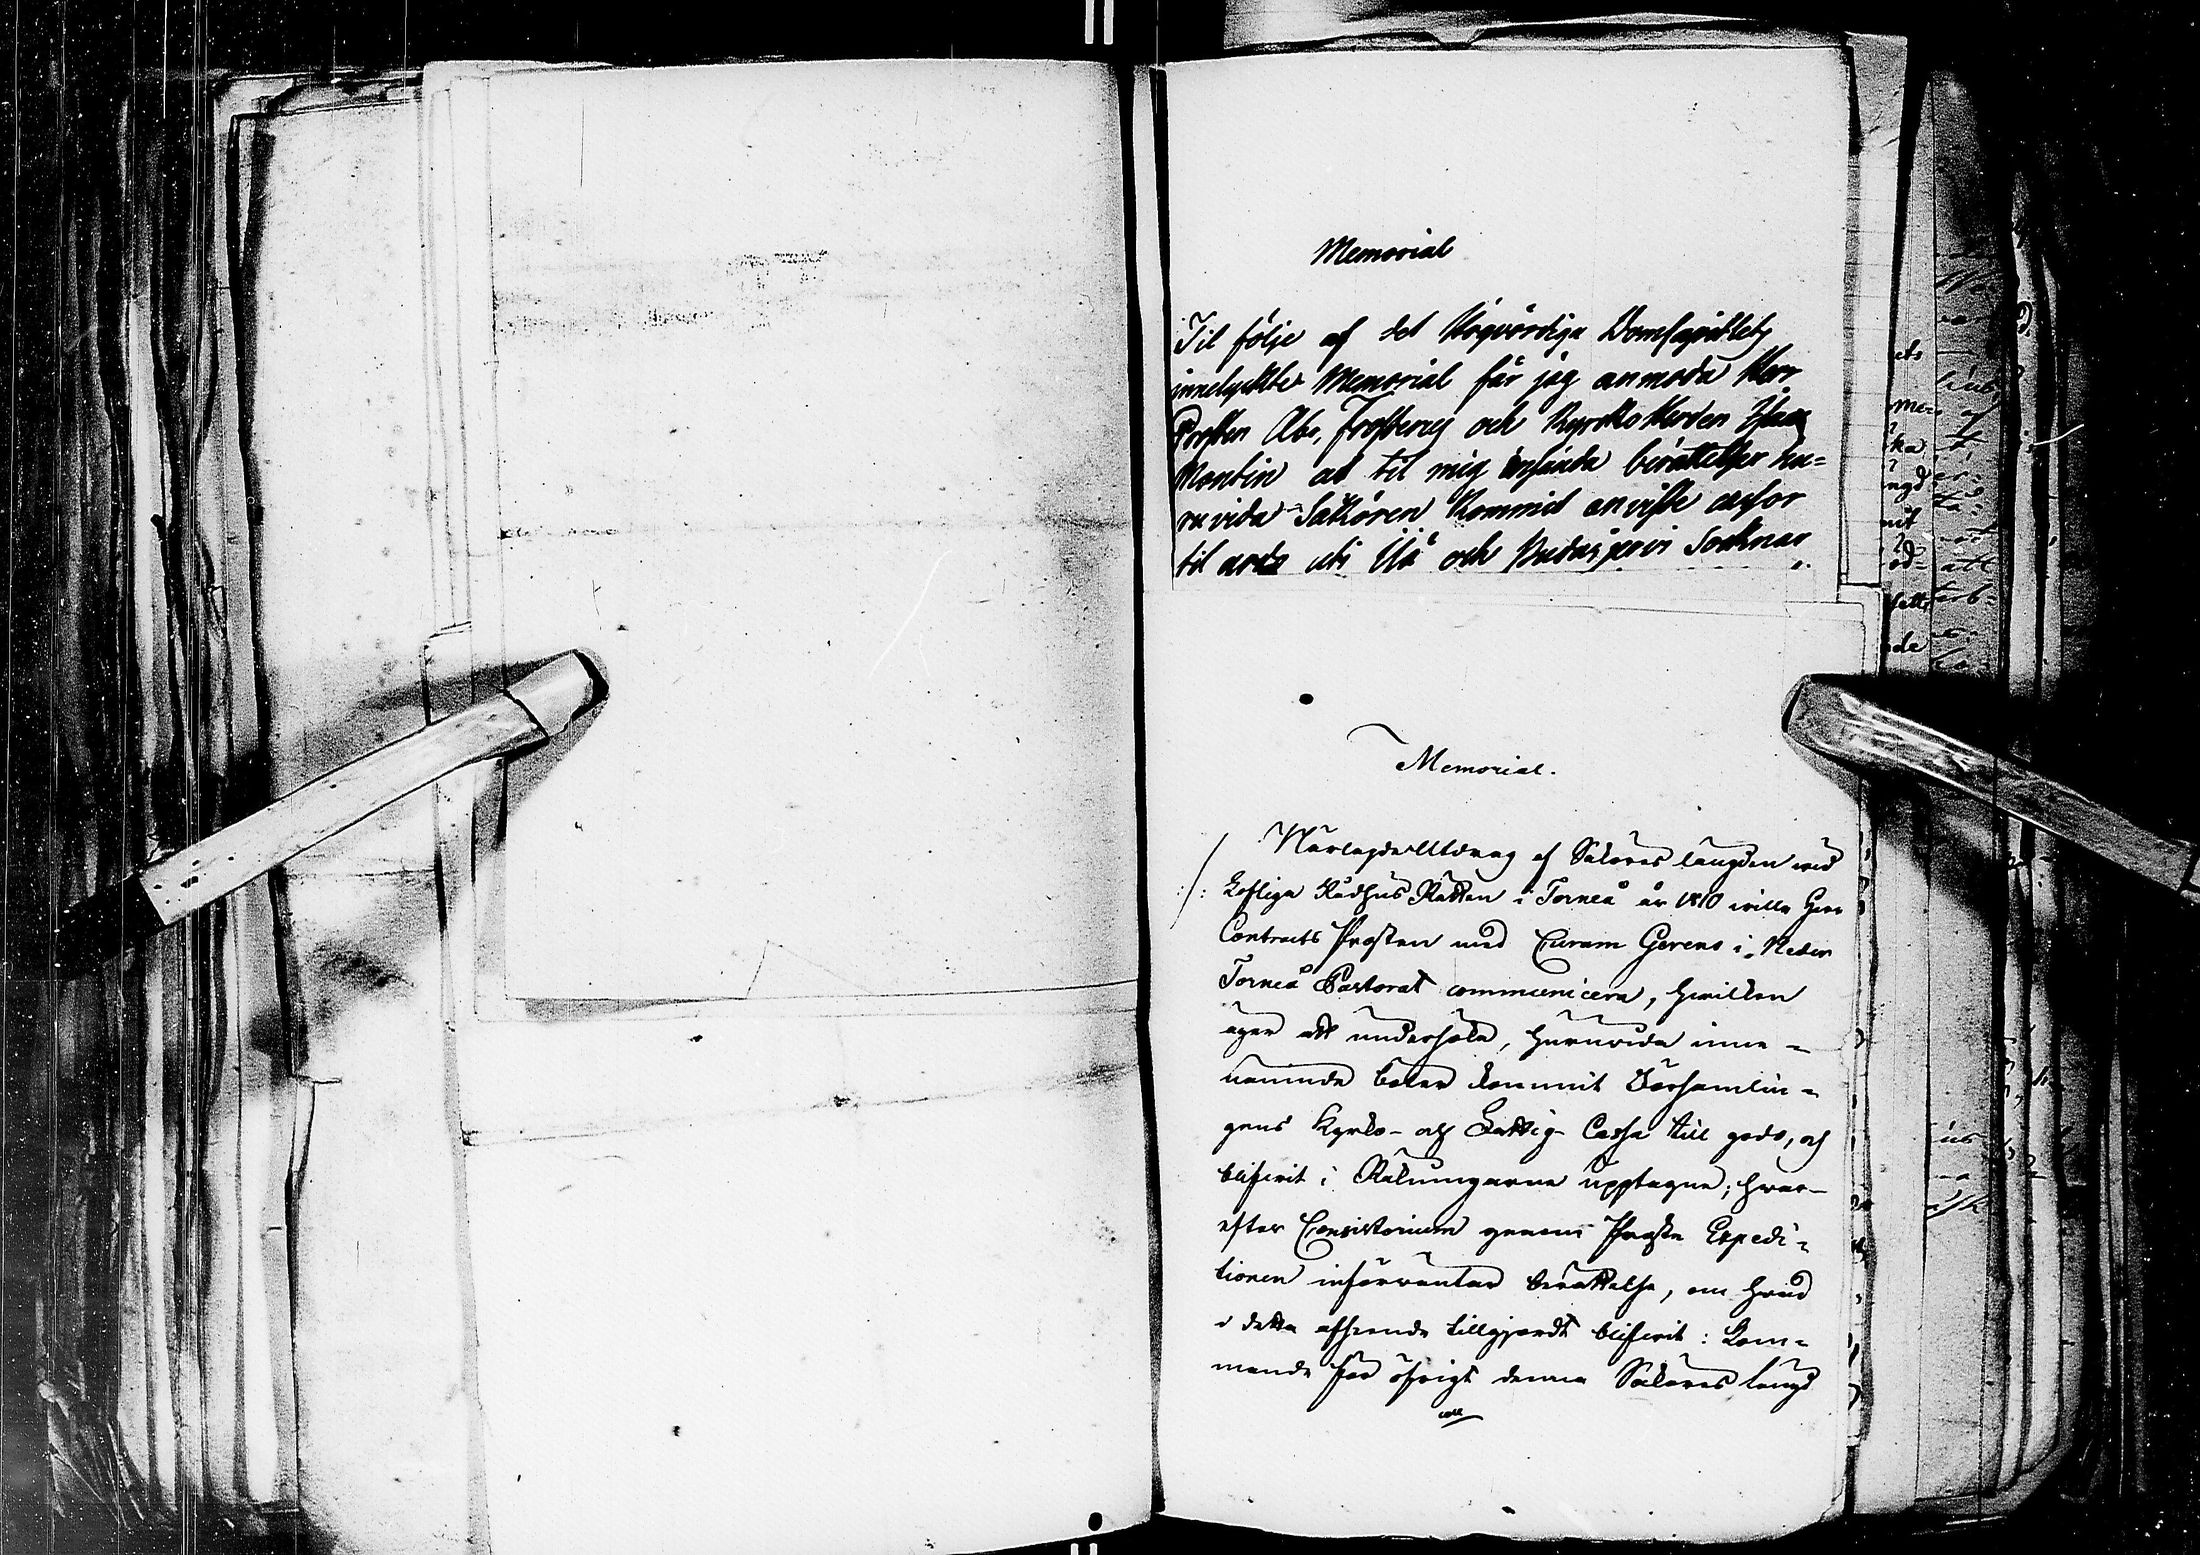 Memorial
Til följe af det Högvördiga Domcapitlets
innelyckte Memorial får jag anmoda Herr
Prosten Abr. Frosterus och Kyrkoherden
Montin at til mig insända berättelser hu=
ruvida Saköron kommit anviste cassor
til godo uti Ijå och Pudasjervi Socknar.
Memorial.
Närlagde Utdrag af Sakören längden vid
Lofliga Rådhus Rätten i Torneå år 1810 wille Herr
Contracts Prosten med Curam Gerens i Neder
Torneå Pastorat communicera, hwilken
äger att underhåla, huruvida inne=
nämnde böter kommit Församlin=
gens Kyrko- och Fattig-Cassa till godo, och
blifvit i Räkningarna upptagne; hwar-
efter Consistorium genom Prosta Expedi=
tionen införväntar berättelse, om hvad
i detta afseende tillgjordt blifvit: Kom=
mande för öfrigt denna Sakörens längd